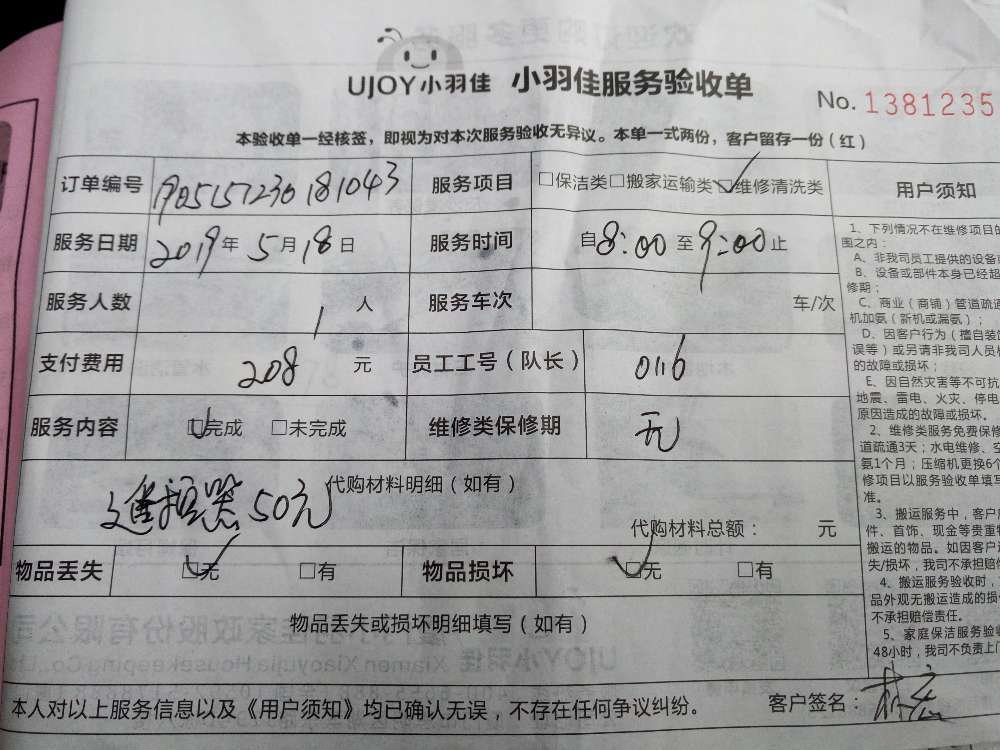 UJOY小羽佳 小羽佳服务验收单
No. 1381235
本验收单一经核签，即视为对本次服务验收无异议。本单一式两份，客户留存一份（红）
订单编号 服务项目 □保洁类□搬家运输类□维修清洗类
服务日期 2019年5月18日 服务时间 自8:00至9:00止
服务人数 1人 服务车次 车/次
支付费用 208元 员工工号（队长） 0116
服务内容 □完成 □未完成 维修类保修期 无
代购材料明细（如有）
遥控器50元
代购材料总额： 元
物品丢失 □无 □有 物品损坏 □无 □有
物品丢失或损坏明细填写（如有）
本人对以上服务信息以及《用户须知》均已确认无误，不存在任何争议纠纷。 客户签名：
用户须知
1、下列情况不在维修项目的
围之内：
A、非我司员工提供的设备
B、设备或部件本身已经超
修期；
C、商业（商铺）管道疏通
机加氨（新机或漏氨）；
D、因客户行为（擅自装
误等）或另请非我司人员
的故障或损坏；
E、因自然灾害等不可抗
地震、雷电、火灾、停电
原因造成的故障或损坏。
2、维修类服务免费保修
道疏通3天；水电维修、空
氨1个月；压缩机更换6个
修项目以服务验收单填写
准。
3、搬运服务中，客户
件、首饰、现金等贵重
搬运的物品。如因客户
失/损坏，我司不承担赔
4、搬运服务验收时，
品外观无搬运造成的损
不承担赔偿责任。
5、家庭保洁服务验收
48小时，我司不负责上门